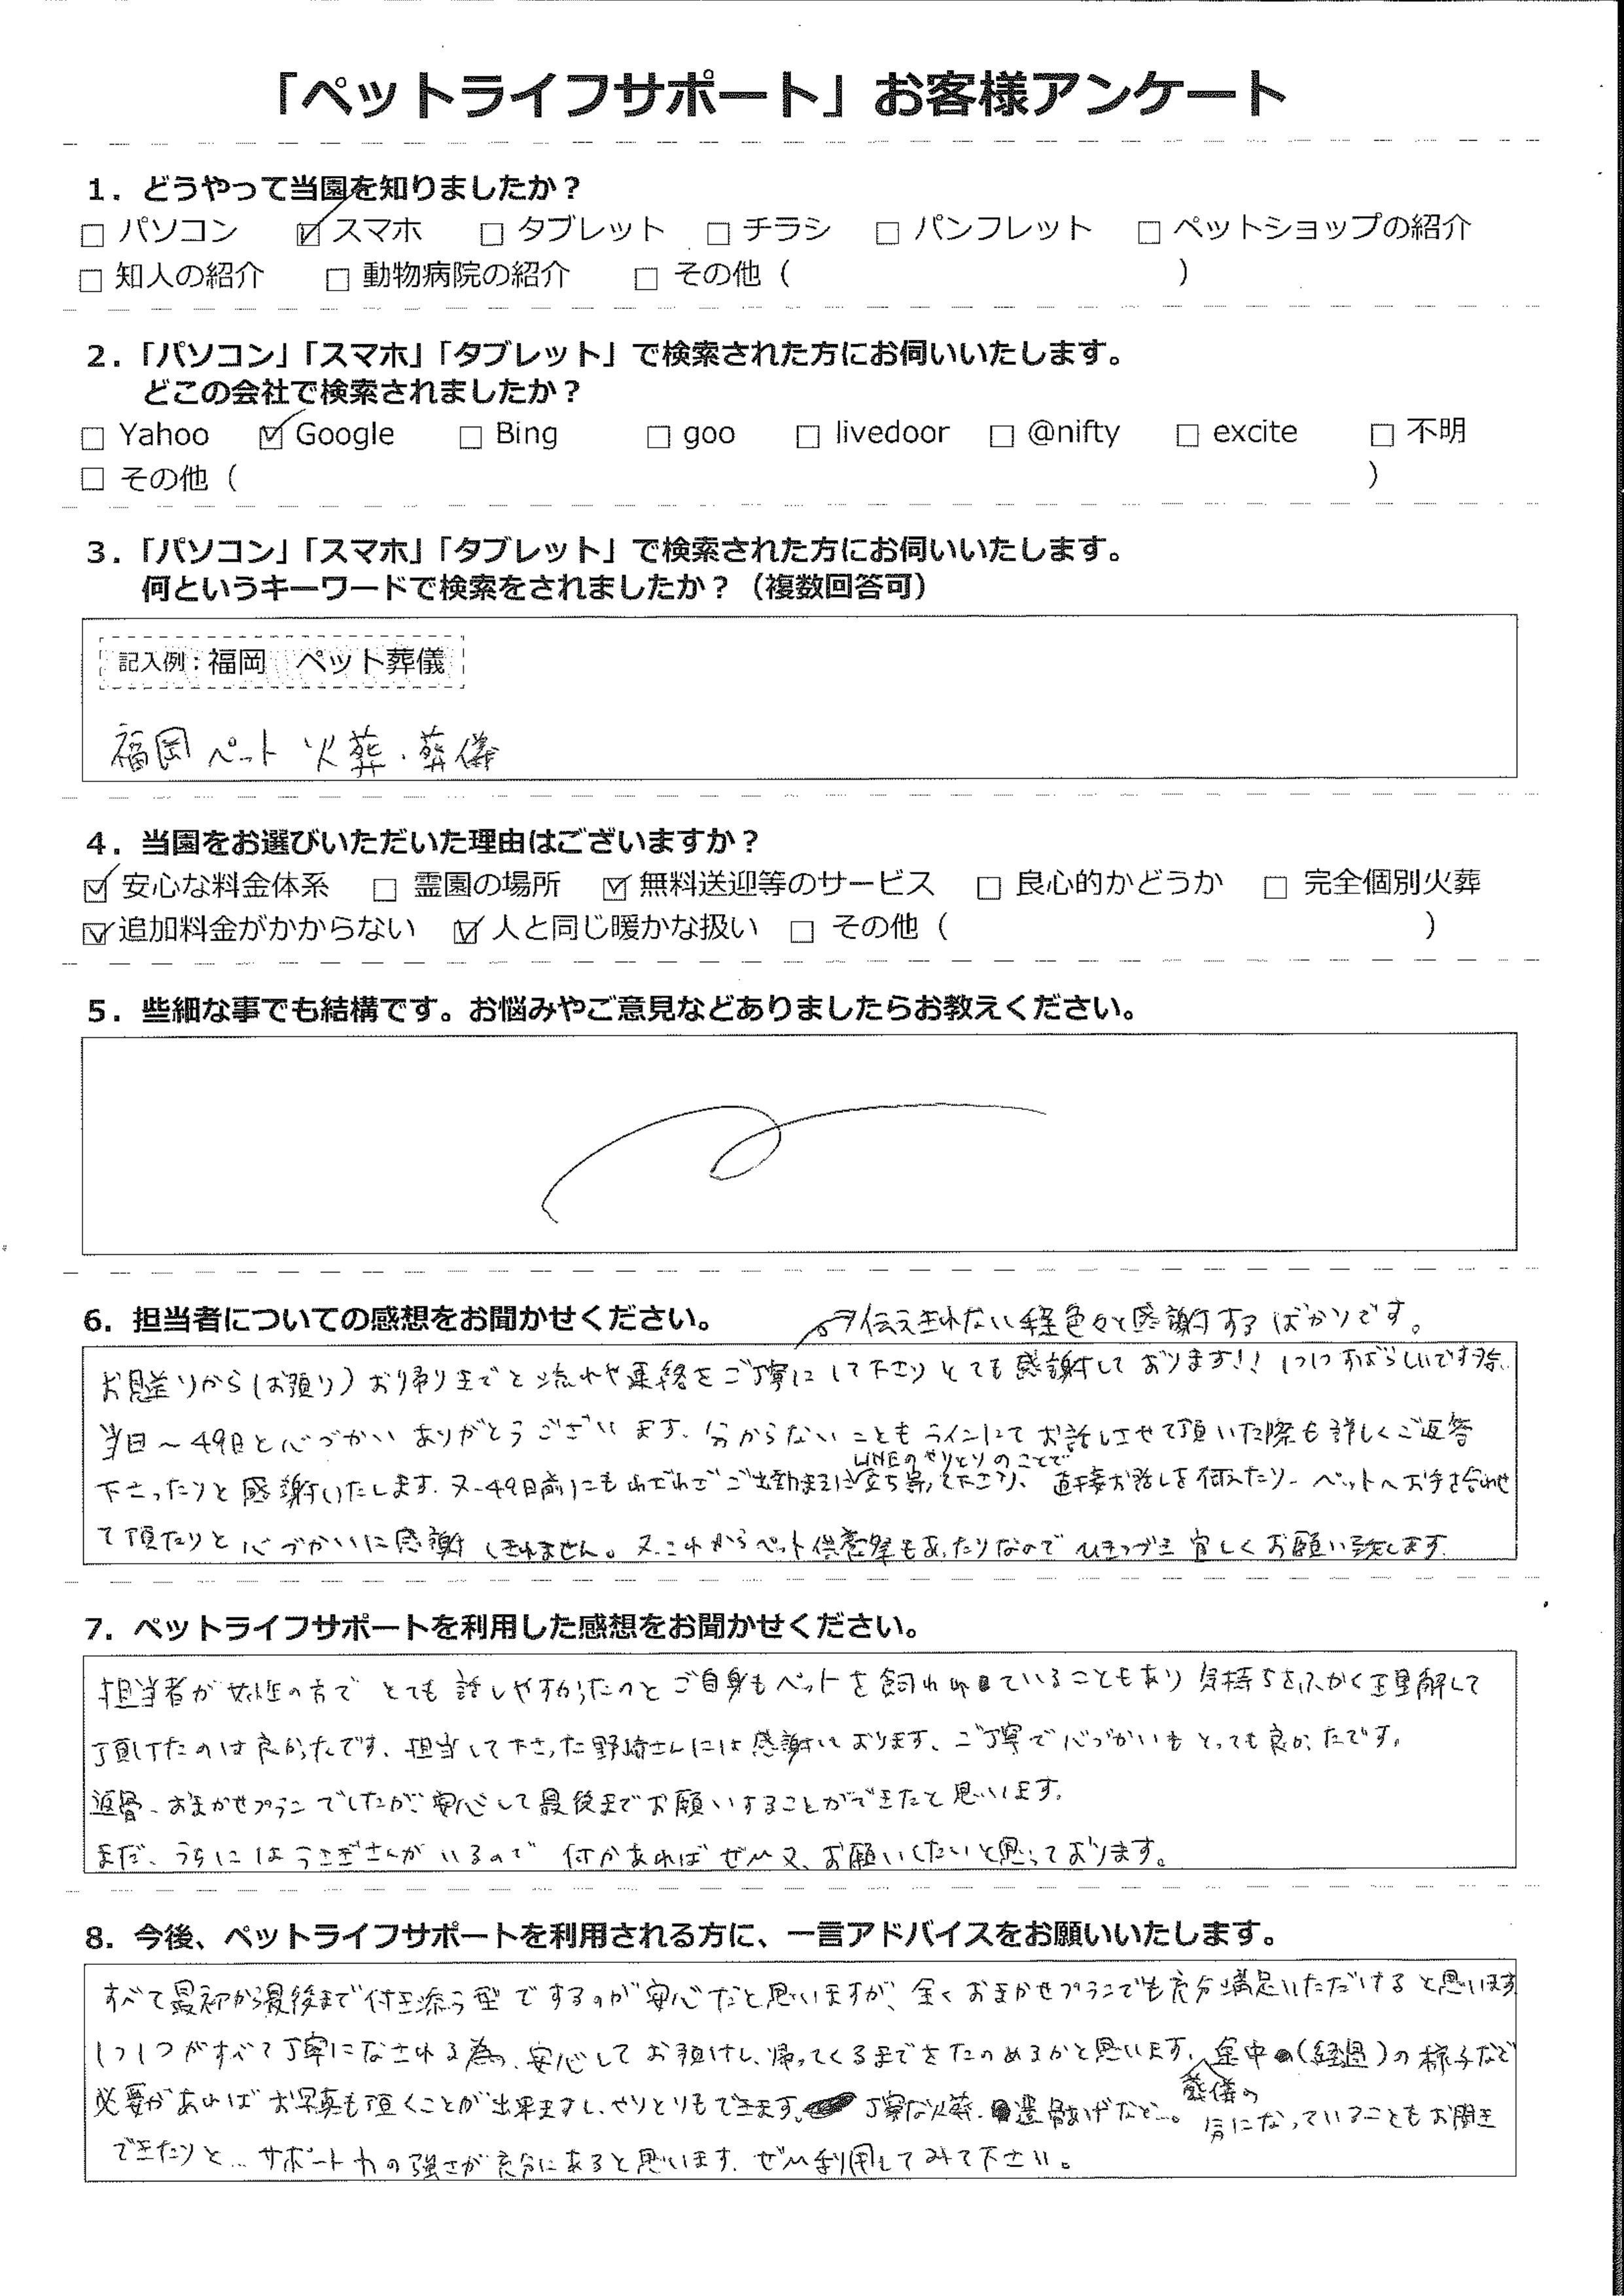 「ペットライフサポート」お客様アンケート
1. どうやって当園を知りましたか？
□ パソコン ☑ スマホ □ タブレット □ チラシ □ パンフレット □ ペットショップの紹介
□ 知人の紹介 □ 動物病院の紹介 □ その他（ ）
2.「パソコン」「スマホ」「タブレット」で検索された方にお伺いいたします。
どこの会社で検索されましたか？
□ Yahoo ☑ Google □ Bing □ goo □ livedoor □ @nifty □ excite □ 不明
□ その他（ ）
3.「パソコン」「スマホ」「タブレット」で検索された方にお伺いいたします。
何というキーワードで検索をされましたか？（複数回答可）
記入例：福岡 ペット葬儀
福岡 ペット 火葬・葬儀
4. 当園をお選びいただいた理由はございますか？
☑ 安心な料金体系 □ 霊園の場所 ☑ 無料送迎等のサービス □ 良心的かどうか □ 完全個別火葬
☑ 追加料金がかからない ☑ 人と同じ暖かな扱い □ その他（ ）
5. 些細な事でも結構です。お悩みやご意見などありましたらお教えください。
6. 担当者についての感想をお聞かせください。
伝えきれない程色々と感謝するばかりです。
お見送りから(お預り)お帰りまでと流れや連絡をご丁寧にして下さりとても感謝しております!! 1つ1つすばらしいです
当日～49日と心づかいありがとうございます、分からないこともラインにてお話しさせて頂いた際も詳しくご返答
LINEのやりとりのことで
下さったりと感謝いたします。又、49日前にもわざわざご出勤まえに立ち寄って下さり、直接お話しを伺えたり、ペットへお手を合わせ
て頂たりと心づかいに感謝しきれません。又、これからペット供養祭もあったりなのでひきつづき宜しくお願い致します。
7. ペットライフサポートを利用した感想をお聞かせください。
担当者が女性の方でとても話しやすかったのとご自身もペットを飼われていることもあり気持ちをふかく理解して
頂けたのは良かったです。担当して下さった野崎さんには感謝しております、ご丁寧で心づかいもとっても良かったです。
返骨、おまかせプランでしたが、安心して最後までお願いすることができたと思います。
まだ、うちにはうさぎさんがいるので 何かあればぜひ又、お願いしたいと思っております。
8. 今後、ペットライフサポートを利用される方に、一言アドバイスをお願いいたします。
すべて最初から最後まで付き添う型でするのが安心だと思いますが、全くおまかせプランでも充分満足いただけると思います
1つ1つがすべて丁寧になされる為、安心してお預けし、帰ってくるまでをたのめるかと思います、途中の(経過)の様子など
葬儀の
必要があればお写真も頂くことが出来ますし、やりとりもできます。丁寧な火葬、遺骨あげなど…。気になっていることもお聞き
できたりと… サポート力の強さが充分にあると思います。ぜひ利用してみて下さい。